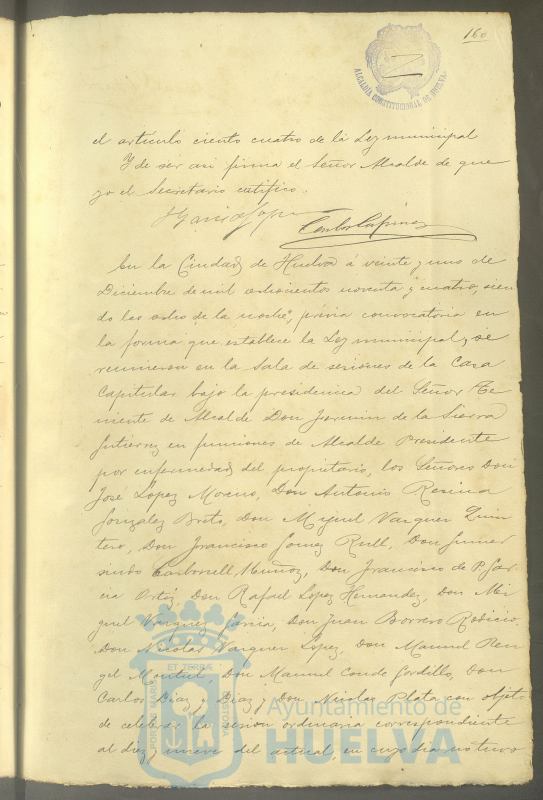 160
ALCALDÍA CONSTITUCIONAL DE HUELVA
el artículo ciento cuatro de la Ley municipal
Y de ser asi firma el Señor Alcalde de que
yo el Secretario certifico.
En la Ciudad de Huelva á veinte y uno de
Diciembre de mil ochocientos noventa y cuatro, sien
do las ocho de la noche, prévia convocatoria en
la forma que establece la Ley municipal, se
reunieron en la Sala de sesiones de la Casa
Capitular bajo la presidencia del Señor Te
niente de Alcalde Don Joaquin de la Sierra
Gutierrez en funciones de Alcalde Presidente
por enfermedad del propietario, los Señores Don
José Lopez Moreno, Don Antonio Resina
Gonzalez Brito, Don Miguel Vazquez Quin
tero, Don Francisco Gomez Rull, Don Gumer
sindo Carbonell Muñoz, Don Francisco de P. Gar
cia Ortiz, Don Rafael Lopez Hernandez, Don Mi
guel Vazquez Garcia, Don Juan Borrero Rodicio,
Don Nicolas Vazquez Lopez, Don Manuel Ren
gel Don Manuel Conde Gordillo, Don
Carlos Diaz y Diaz y Don Nicolas Plata con objeto
de celebrar la sesion ordinaria correspondiente
al diez y nueve del actual, en cuyo dia no tuvo
ET TERRÆ
PORTUS MARIS
CUSTODIA
Ayuntamiento de
HUELVA